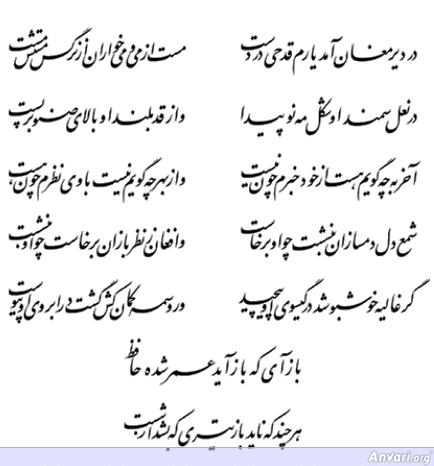 در دیر مغان آمد یارم قدحی در دست مست از می و میخواران از نرگس مستش مست
در نعل سمند او شکل مه نو پیدا وز قد بلند او بالای صنوبر پست
آخر به چه گویم هست از خود خبرم چون نیست وز بهر چه گویم نیست با وی نظرم چون هست
شمع دل دمسازان بنشست چو او برخاست و افغان ز نظربازان برخاست چو او بنشست
گر غالیه خوشبو شد در گیسوی او پیچید ور وسمه کمانکش گشت در ابروی او پیوست
بازآی که بازآید عمر شده حافظ
هرچند که ناید باز تیری که بشد از شست
Anvari.org